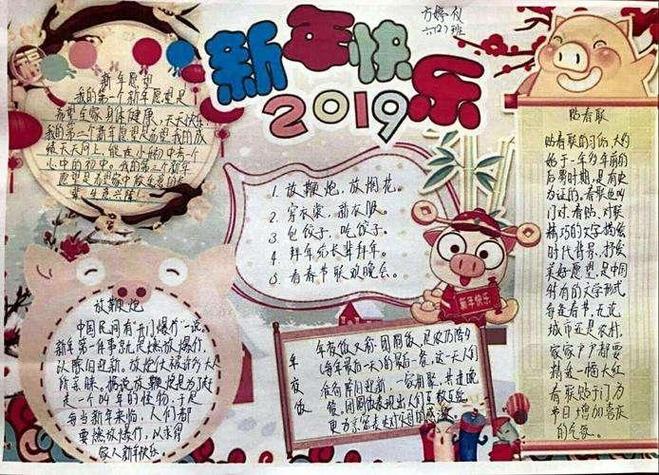 新年快乐
2019
六(2)班
新年愿望
我的第一个新年愿望是
希望家人身体健康,天天快乐
我的第二个新年愿望是希望我的成
绩天天向上,能在小初中考个
心中的初中。我的第三个新年
1、放鞭炮,放烟花。
2、穿衣裳,
3、包饺子,吃饺子。
4、拜年给长辈拜年。
5、看春节联欢晚会。
新年快乐
贴春联
贴春联的习俗,大约
始于一年多年前的
后蜀时期,是有史
为证的。春联也叫
门对、春贴、对联
精巧的文字描绘
时代背景,抒发
美好愿望,是中国
特有的文学形式
每在春节,无论
城市还是农村,
家家户户都要
精选一幅大红
春联贴于门为
节日增加喜庆
的气氛。
放鞭炮
中国民间有"开门爆竹"一说,
新年第一件事就是燃放爆竹,
以除旧迎新。放炮仗被许多大人
所亲睐。据说放鞭炮是为了吓
走一个叫年的怪物,于是
每当新年来临,人们都
要燃放爆竹,以求得
家人新年快乐
年夜饭
年夜饭又称团圆饭,是农历除夕
(每年最后一天)的最后一餐,这一天人们
准备除旧迎新,一家相聚,共进晚
餐。团圆饭表现出人们互敬互爱,